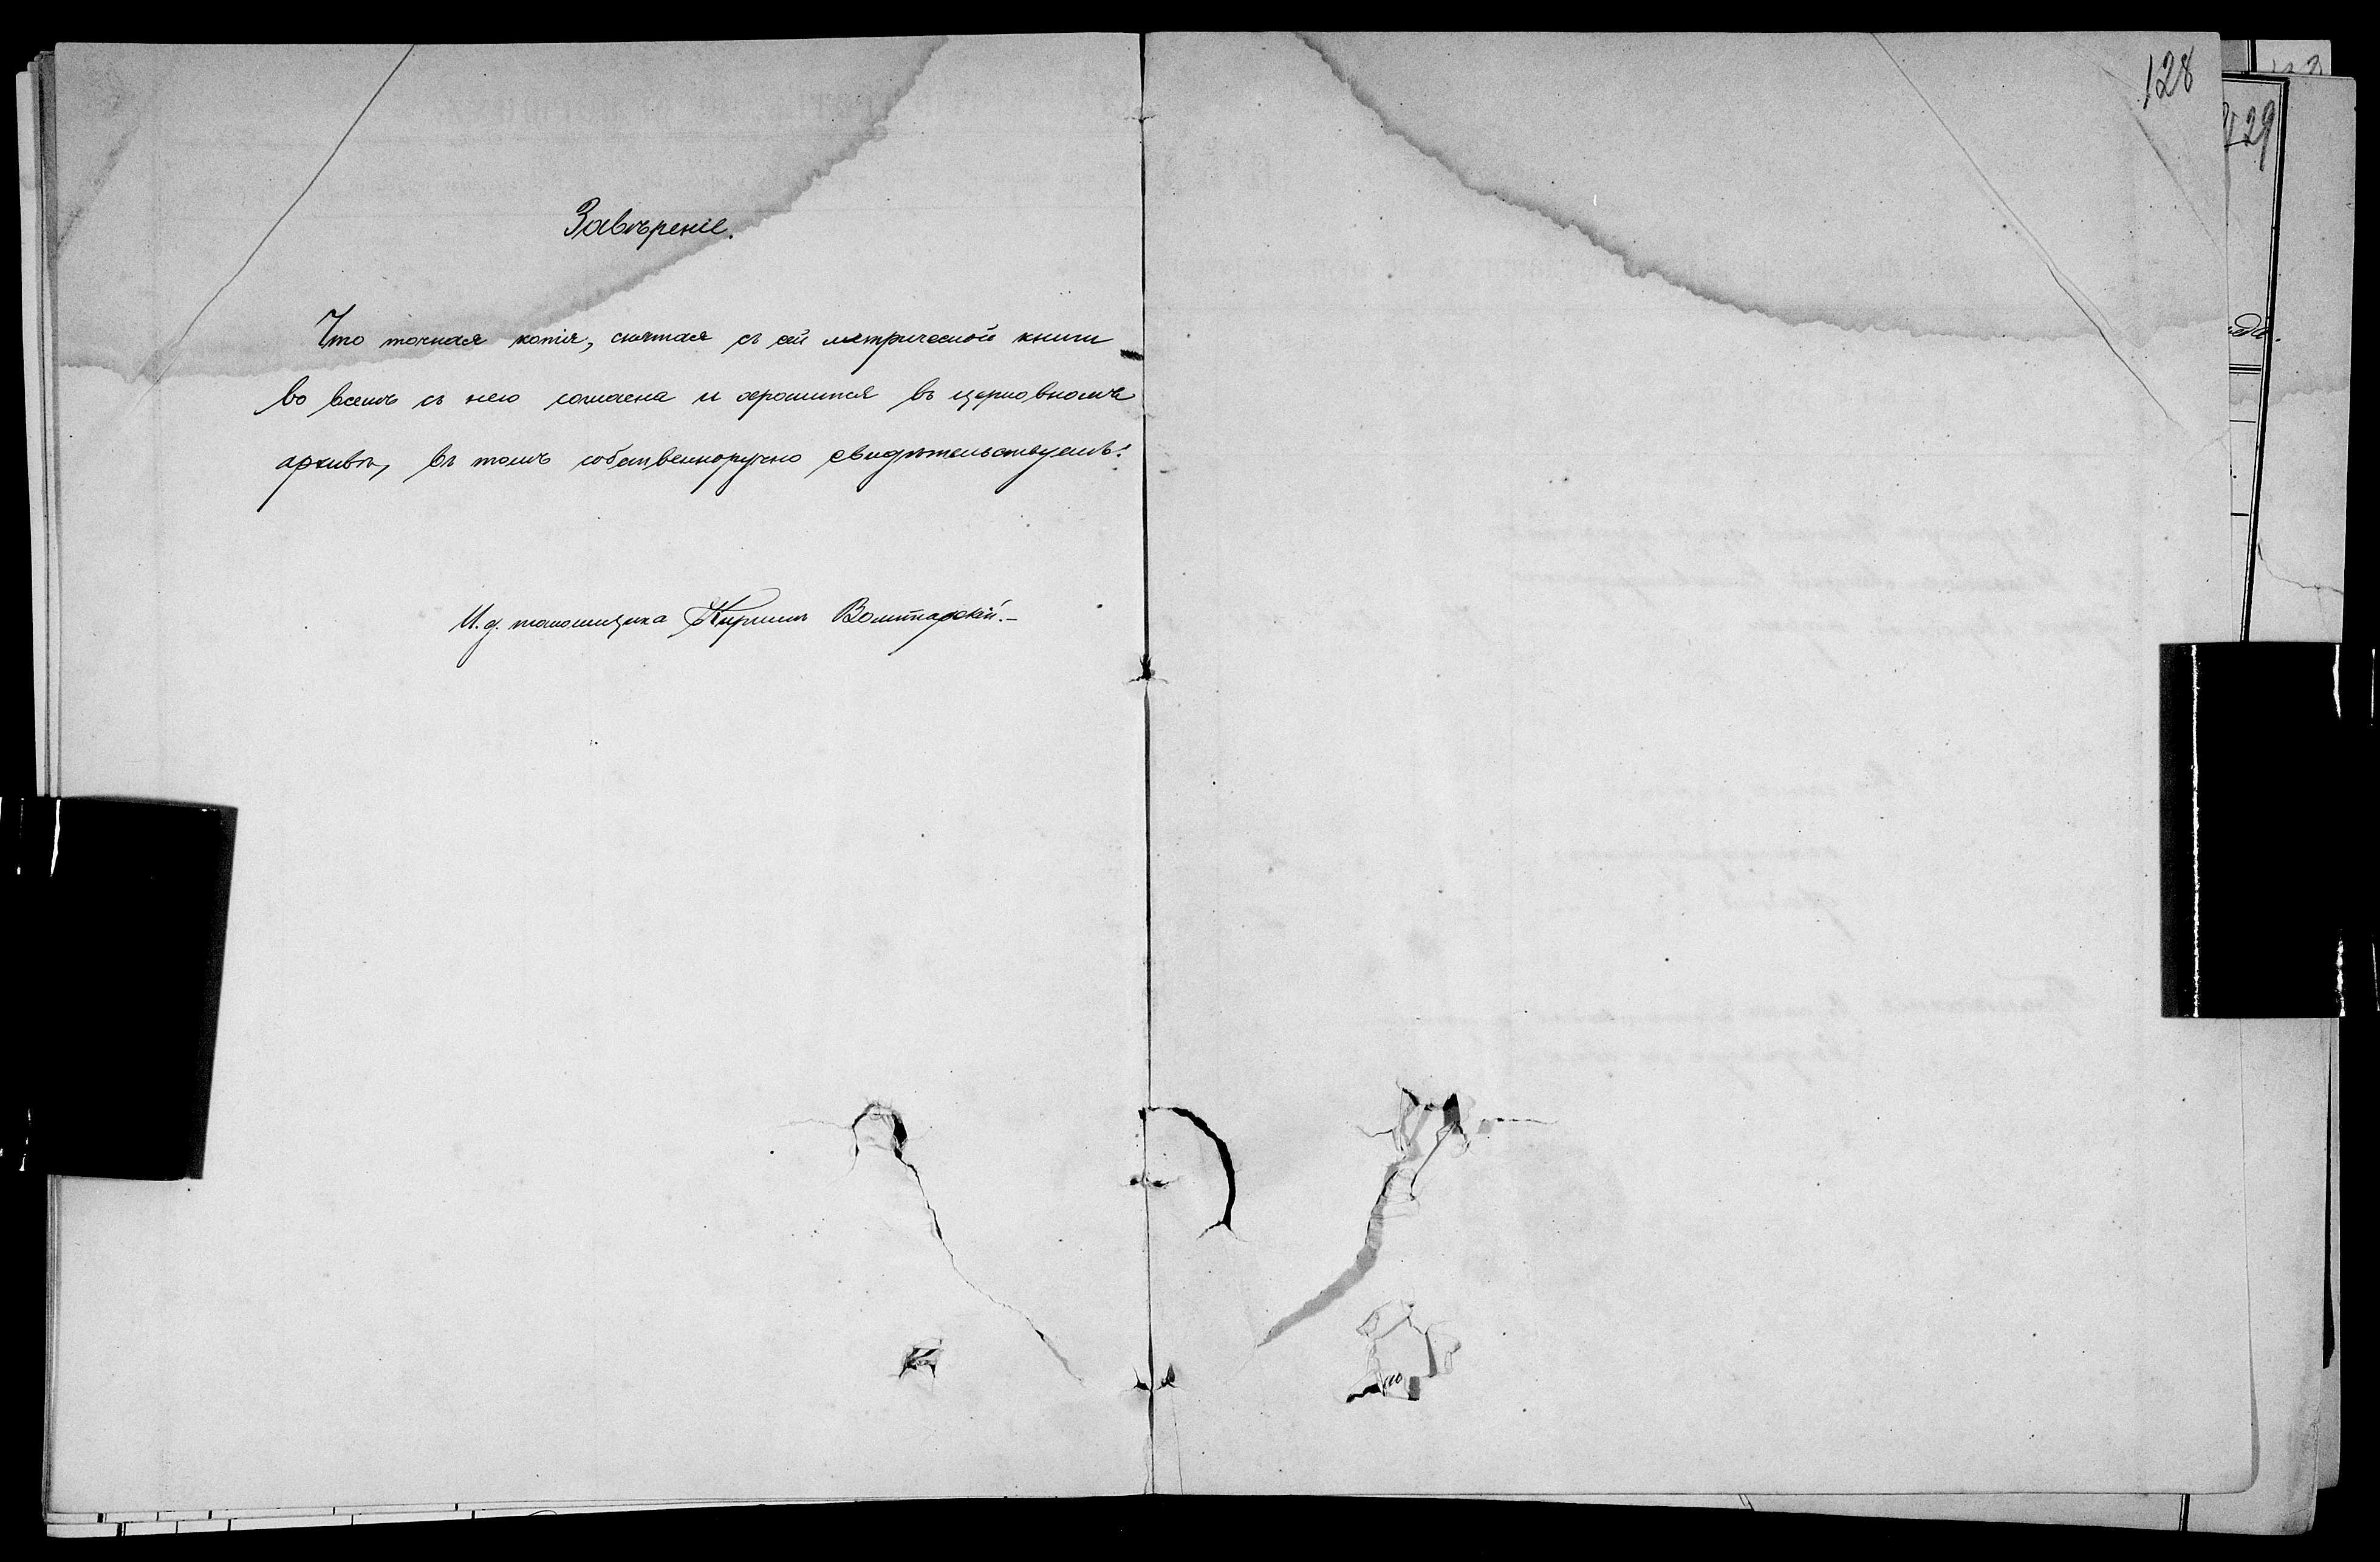 128
129
Завѣреніе.
Что точная копія, снятая съ сей метрической книги
во всемъ съ нею согласна и хранится въ церковномъ
архивѣ, въ томъ собственноручно свидѣтельствуемъ:
И. д. псаломщика Кириллъ